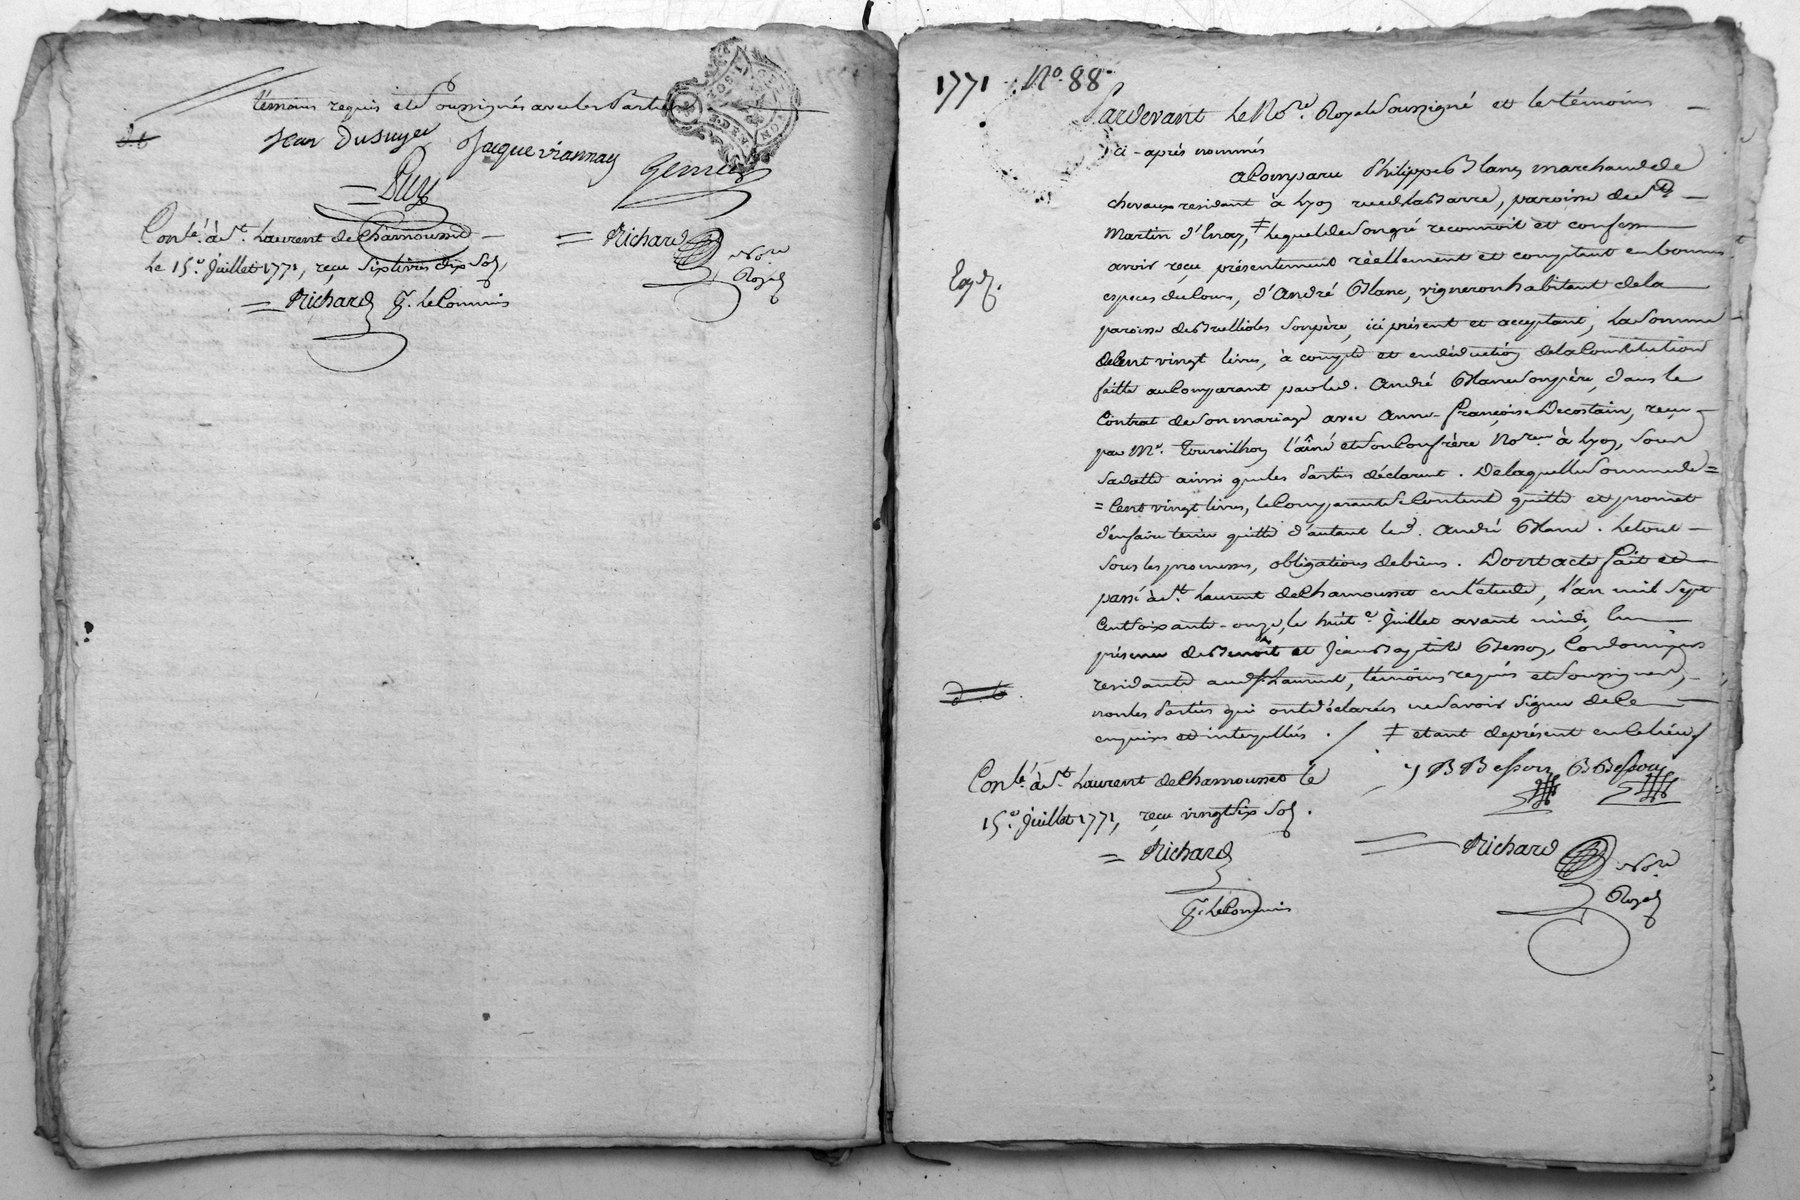 témoins requis et Soussignés avec les Parties
d. t
Jean Dusuyer Jacque viannay
Puy
Con.lé à S.t Laurent de Chamousset
Le 15.e Juillet 1771, reçu six livres dix Sols
= Richard
Not.re
Royal
= Richard p.r le Commis
1771 N.o 88.
Pardevant Le No.re Royal Soussigné et les témoins
ici-après nommés
a Comparu Philippe Blanc marchand de
chevaux residant à Lyon rue de la Barre, paroisse de S.t
Martin d'Enay, ‡ Lequel de Son gré reconnoit et confesse
avoir reçu présentement réellement et comptant en bonnes
Expéd.
especes du Cours, d'André Blanc, vigneron habitant de la
paroisse de Brullioles Son père, ici présent et acceptant, La Somme
de Cent vingt livres, à compte et en déduction de la Constitution
faitte au Comparant par led. André Blanc Son père, dans le
Contrat de Son mariage avec Anne-françoise Decostain, reçu
par M.e Tournilhon l'aîné et Son Confrère No.res à Lyon, Sous
Sa datte ainsi que les Parties déclarent. De laquelle Somme de =
= Cent vingt livres, le Comparant Se Contente quitte et promet
d'en faire tenir quitte d'autant led. André Blanc. Le tout
Sous les promesses, obligations de biens. Dont acte fait et
passé à S.t Laurent de Chamousset en l'étude, l'an mil Sept
Cent Soixante-onze, le huit.e Juillet avant midi, En
présence de Benoit et Jean Baptiste Besson, Cordonniers
residants aud. S.t Laurent, témoins requis et Soussignés,
d. t
non les Parties qui ont déclarées ne Savoir Signer de Ce
enquises et interpellées. ‡ etant de présent en Ce lieu
J B Besson B Besson
Con.lé à S.t Laurent de Chamousset le
15.e Juillet 1771, reçu vingt Six Sols.
= Richard
p.r le Commis
Richard
Not.re
Royal